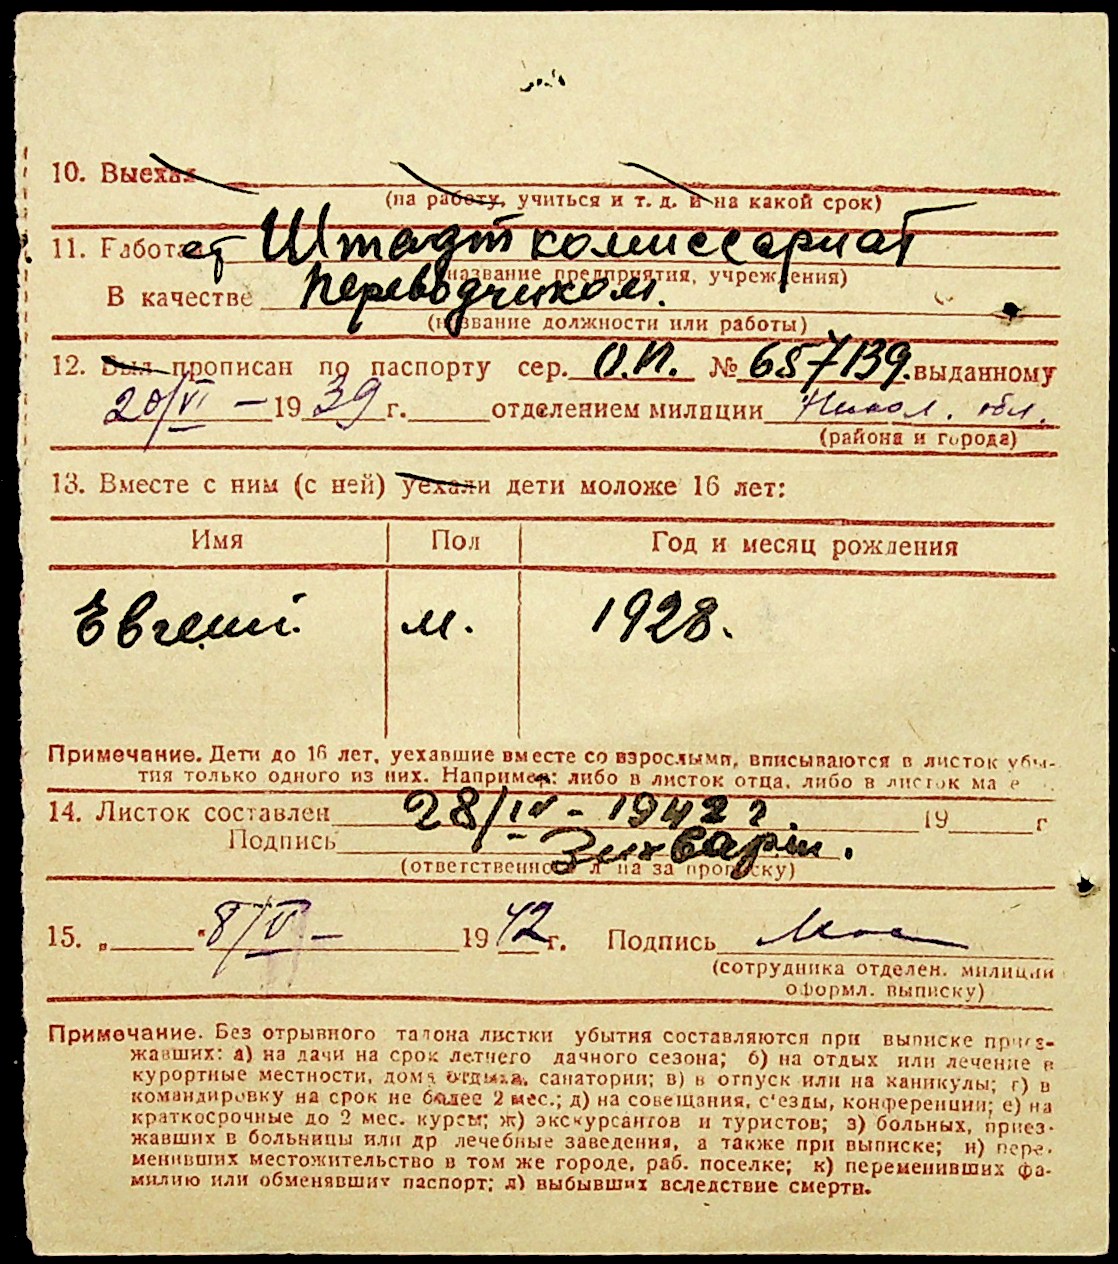 10. Выехал
(на работу, учиться и т. д. и на какой срок)
11. Работает Штадткомиссариат
(название предприятия, учреждения)
В качестве переводчиком.
(название должности или работы)
12. Был прописан по паспорту сер. О.П. № 657139. выданному
20/VI — 1939 г. отделением милиции Никол. обл.
(района и города)
13. Вместе с ним (с ней) уехали дети моложе 16 лет:
Имя Пол Год и месяц рождения
Евгений. м. 1928.
Примечание. Дети до 16 лет, уехавшие вместе со взрослыми, вписываются в листок убы-
тия только одного из них. Например: либо в листок отца, либо в листок ма е
14. Листок составлен 28/IV - 1942 г. 19 г
Подпись
(ответственного л на за прописку)
15. „ " 8/V — 1942 г. Подпись
(сотрудника отделен. милиции
оформл. выписку)
Примечание. Без отрывного талона листки убытия составляются при выписке приез-
жавших: а) на дачи на срок летнего дачного сезона; б) на отдых или лечение в
курортные местности, дома отдыха, санатории; в) в отпуск или на каникулы; г) в
командировку на срок не более 2 мес.; д) на совещания, с'езды, конференции; е) на
краткосрочные до 2 мес. курсы; ж) экскурсантов и туристов; з) больных, приез-
жавших в больницы или др лечебные заведения, а также при выписке; и) пере-
менивших местожительство в том же городе, раб. поселке; к) переменивших фа-
милию или обменявших паспорт; л) выбывших вследствие смерти.